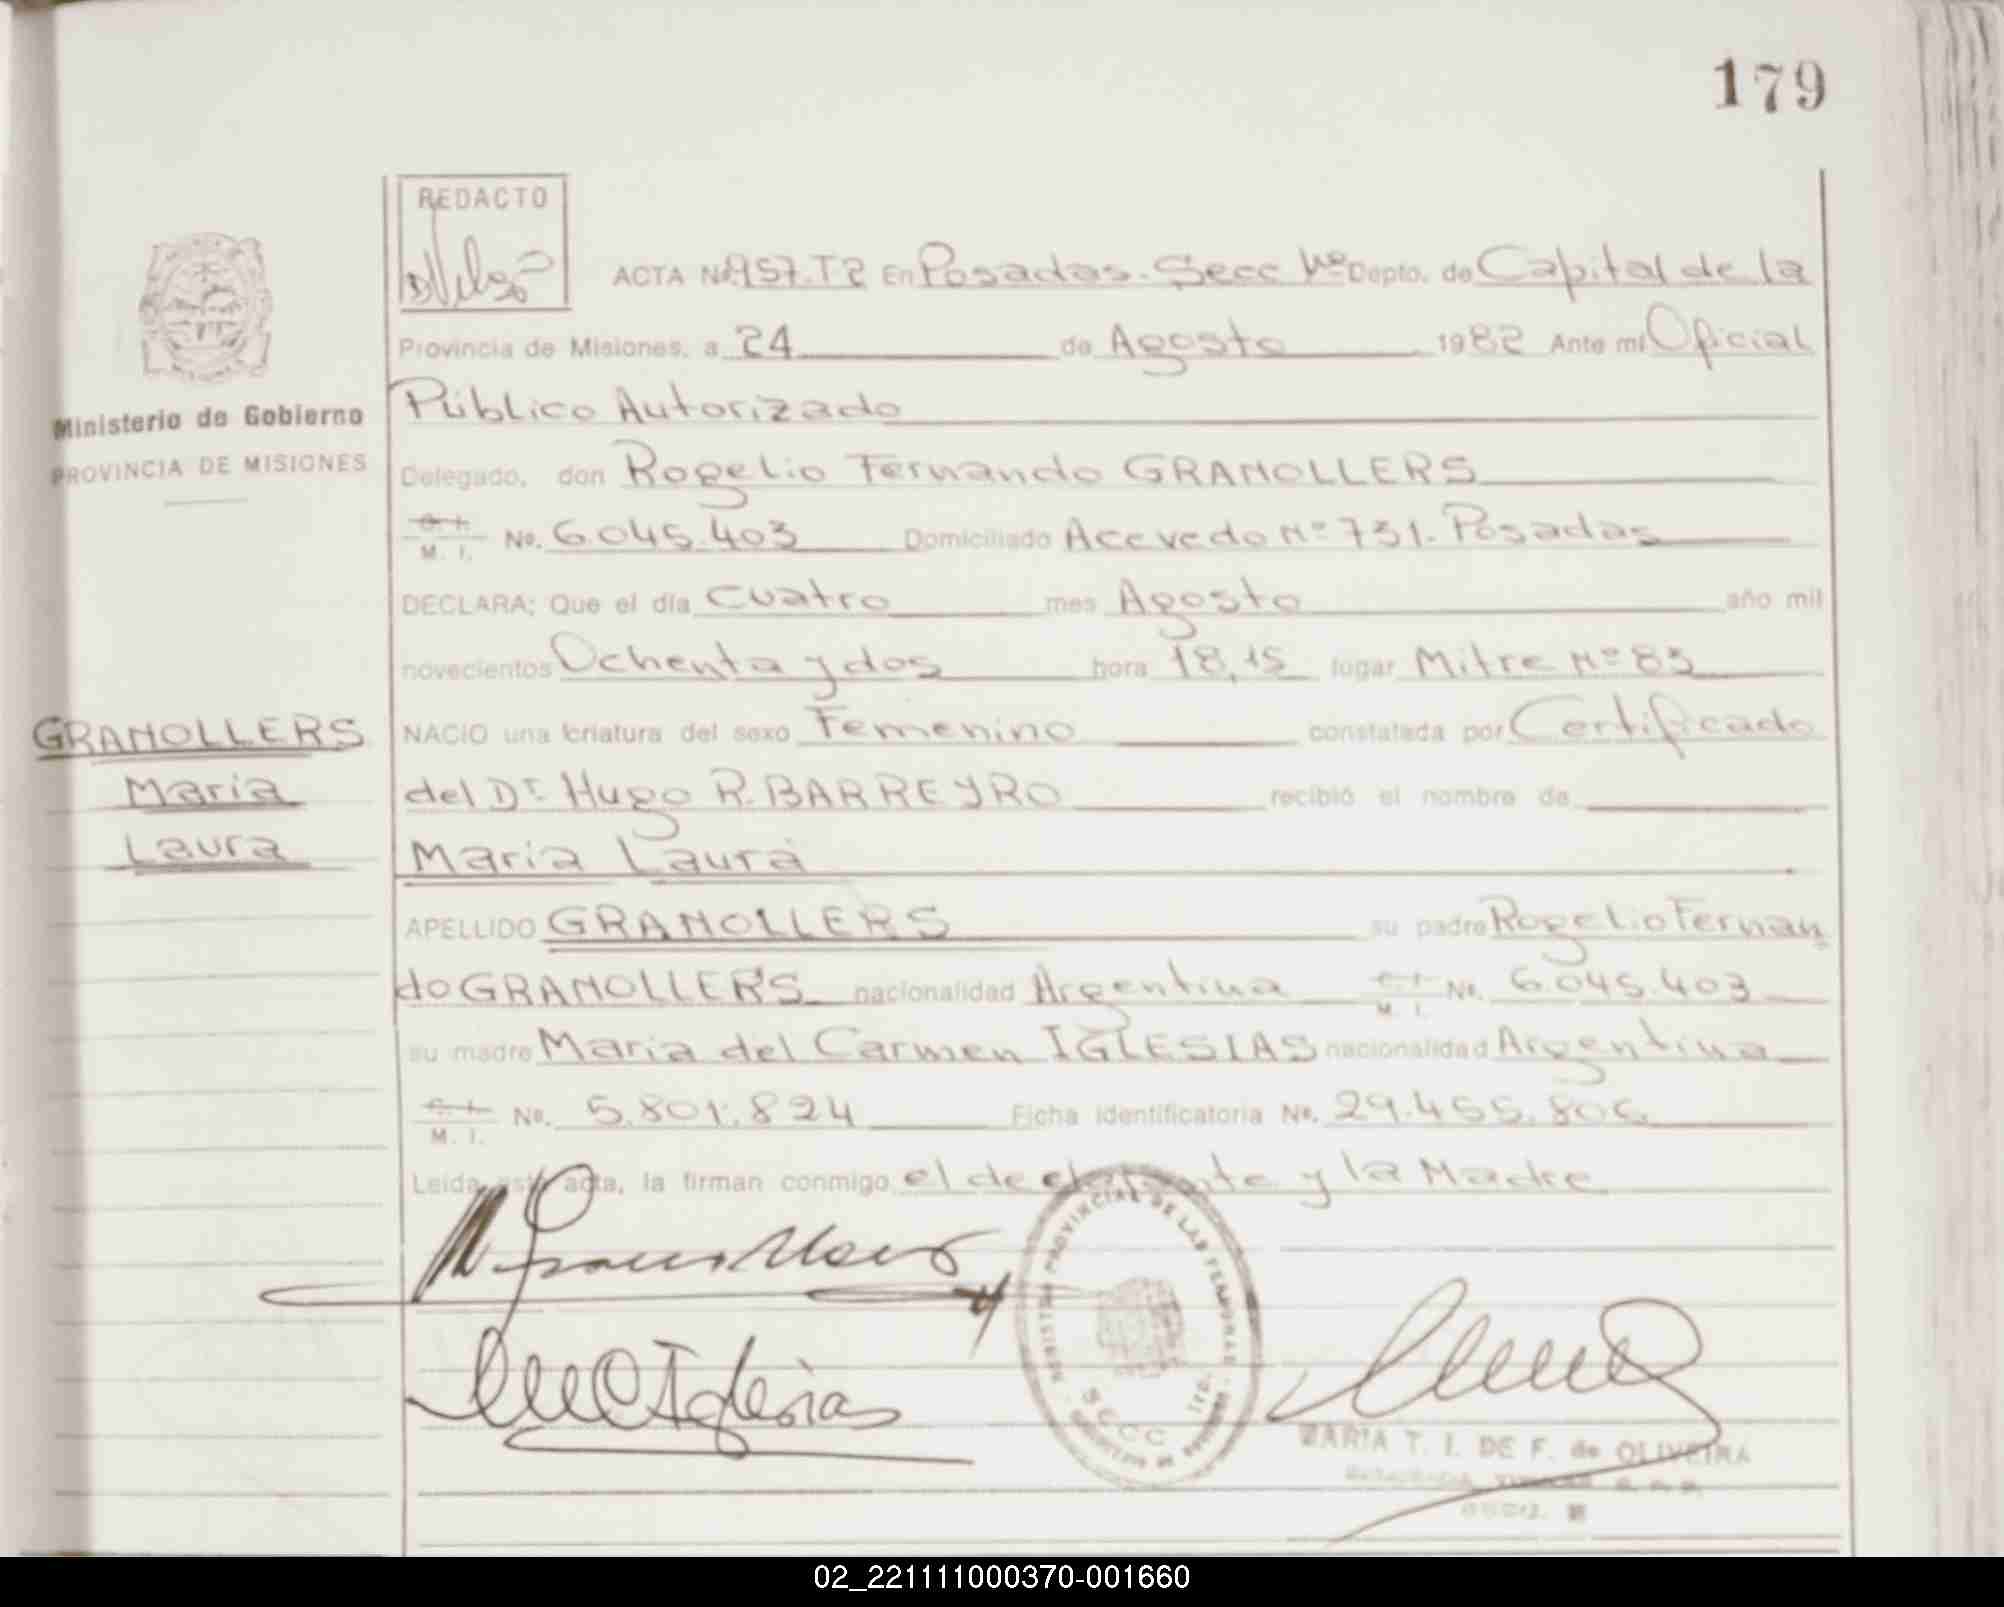 179
REDACTO
ACTA No. 957.T2 En Posadas. Secc Nº Depto. de Capital de la
Provincia de Misiones, a 24 de Agosto 1982 Ante mi Oficial
Público Autorizado
Ministerio de Gobierno
PROVINCIA DE MISIONES
Delegado, don Rogelio Fernando GRANOLLERS
C. I. M. I. No. 6.045.403 Domiciliado Acevedo Nº 731. Posadas
DECLARA: Que el día Cuatro mes Agosto año mil
novecientos Ochenta y dos hora 18,15 lugar Mitre Nº 83
GRANOLLERS
Maria
Laura
NACIO una criatura del sexo Femenino constatada por Certificado
del Dr. Hugo R. BARREYRO recibió el nombre de
Maria Laura
APELLIDO GRANOLLERS su padre Rogelio Fernan
do GRANOLLERS nacionalidad Argentina C. I. M. I. No. 6.045.403
su madre Maria del Carmen IGLESIAS nacionalidad Argentina
C. I. M. I. No. 5.801.824 Ficha identificatoria No. 29.455.806
Leida esta acta, la firman conmigo el declarante y la Madre
REGISTRO PROVINCIAL DE LAS PERSONAS
SECC
MARIA T. I. DE F. de OLIVEIRA
02_221111000370-001660